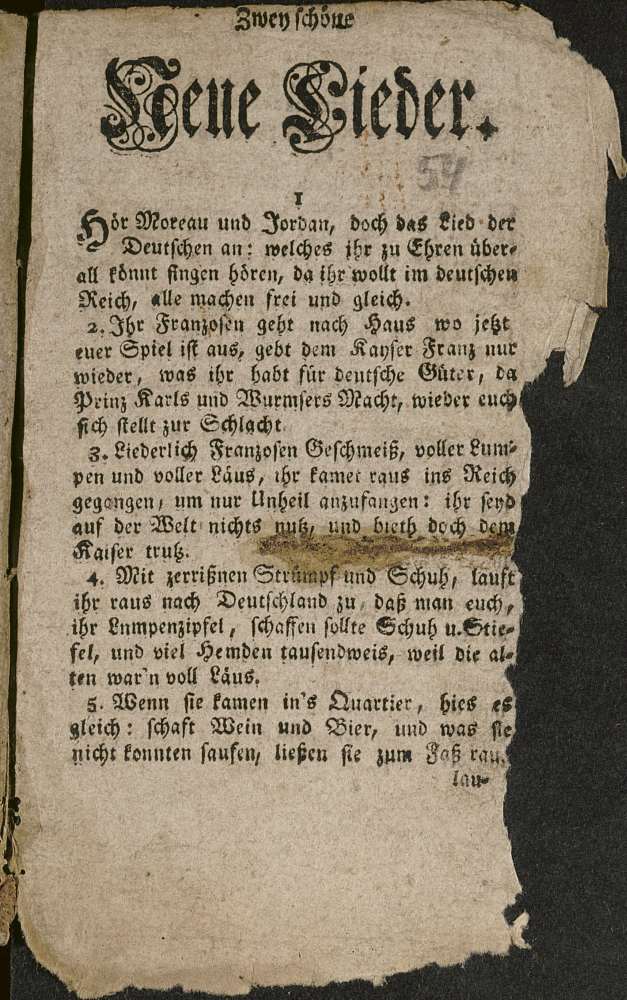 Zwey schöne
Neue Lieder.
54
1
Hör Moreau und Jordan, doch das Lied der
Deutschen an: welches ihr zu Ehren über-
all könnt singen hören, da ihr wollt im deutschen
Reich, alle machen frei und gleich.
2. Ihr Franzosen geht nach Haus wo jetzt
euer Spiel ist aus, gebt dem Kayser Franz nur
wieder, was ihr habt für deutsche Güter, da
Prinz Karls und Wurmsers Macht, wieder euch
sich stellt zur Schlacht.
3. Liederlich Franzosen Geschmeiß, voller Lum-
pen und voller Läus, ihr kamet raus ins Reich
gegangen, um nur Unheil anzufangen: ihr seyd
auf der Welt nichts nutz, und bieth doch dem
Kaiser trutz.
4. Mit zerrißnen Strümpf und Schuh, lauft
ihr raus nach Deutschland zu, daß man euch,
ihr Lumpenzipfel, schaffen sollte Schuh u. Stie-
fel, und viel Hemden tausendweis, weil die al-
ten war'n voll Läus.
5. Wenn sie kamen in's Quartier, hies es
gleich: schaft Wein und Bier, und was sie
nicht konnten saufen, ließen sie zum Faß
lau-